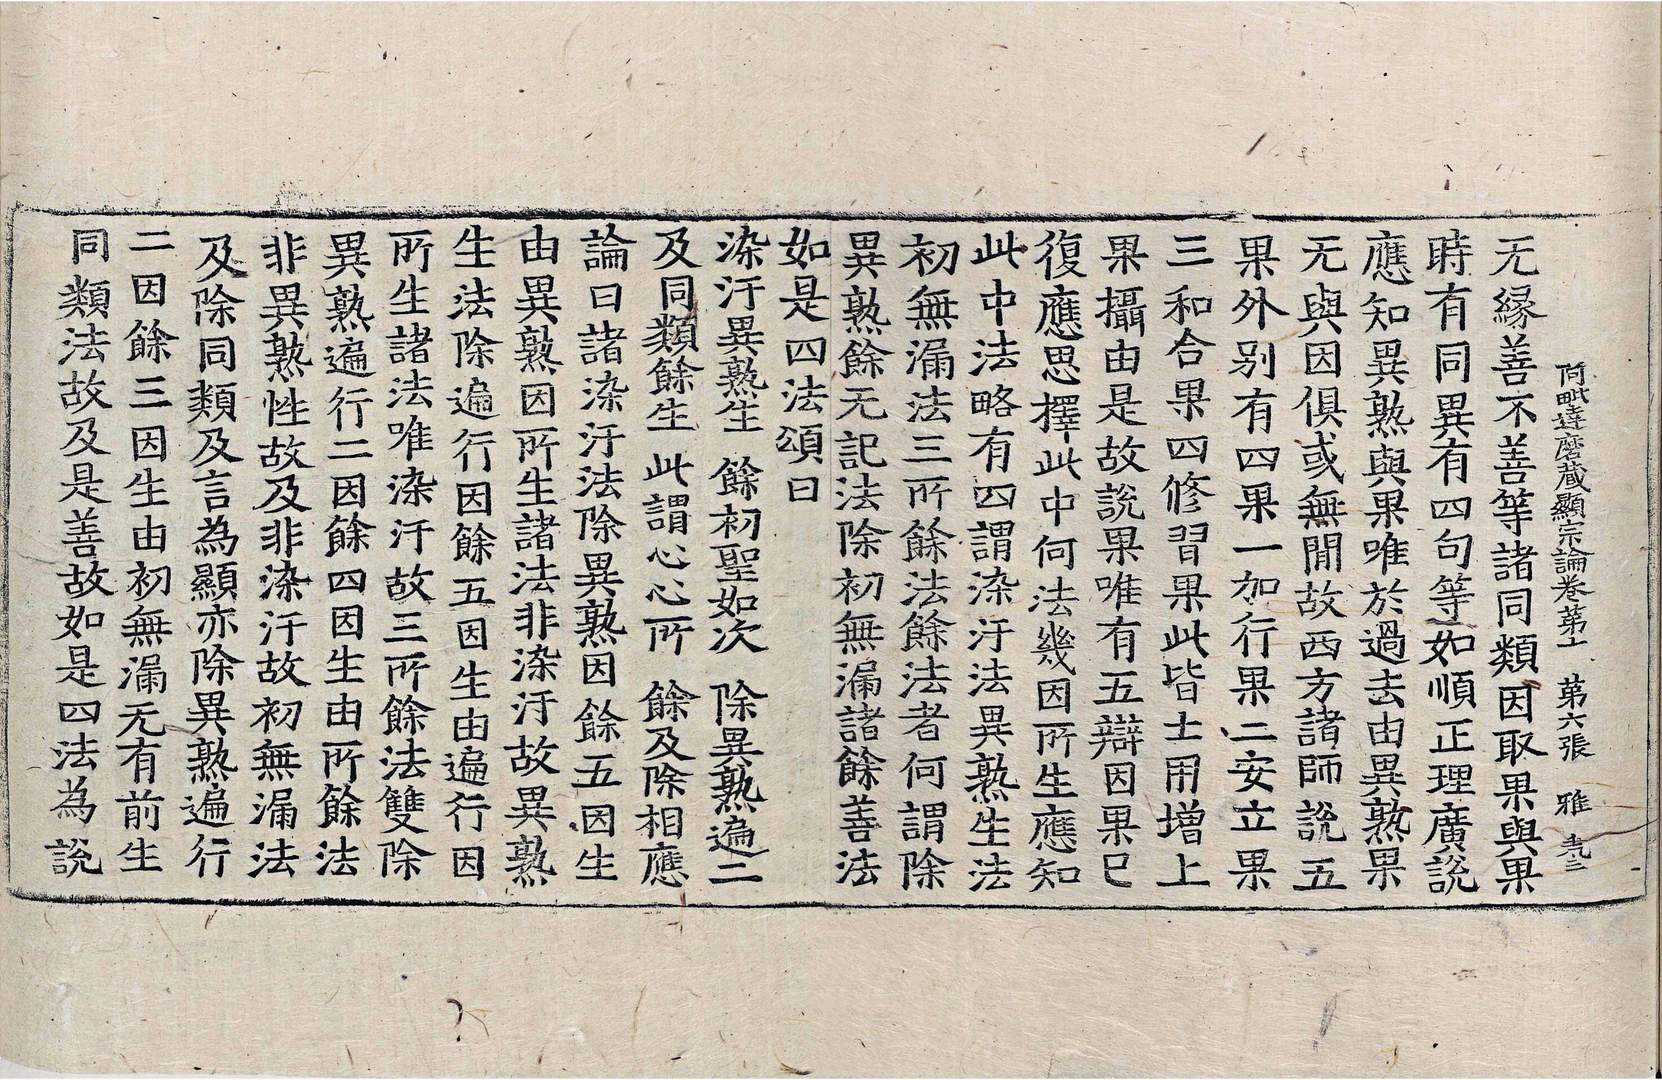 阿毗達磨藏顯宗論卷第十 第六張 雅
无緣善不善等諸同類因取果與果
時有同異有四句等如順正理廣說
應知異熟與果唯於過去由異熟果
无與因俱或無間故西方諸師說五
果外別有四果一加行果二安立果
三和合果四修習果此皆士用增上
果攝由是故說果唯有五辯因果已
復應思擇此中何法幾因所生應知
此中法略有四謂染汙法異熟生法
初無漏法三所餘法餘法者何謂除
異熟餘无記法除初無漏諸餘善法
如是四法頌曰
染汙異熟生 餘初聖如次 除異熟遍二
及同類餘生 此謂心心所 餘及除相應
論曰諸染汙法除異熟因餘五因生
由異熟因所生諸法非染汙故異熟
生法除遍行因餘五因生由遍行因
所生諸法唯染汙故三所餘法雙除
異熟遍行二因餘四因生由所餘法
非異熟性故及非染汙故初無漏法
及除同類及言為顯亦除異熟遍行
二因餘三因生由初無漏无有前生
同類法故及是善故如是四法為說